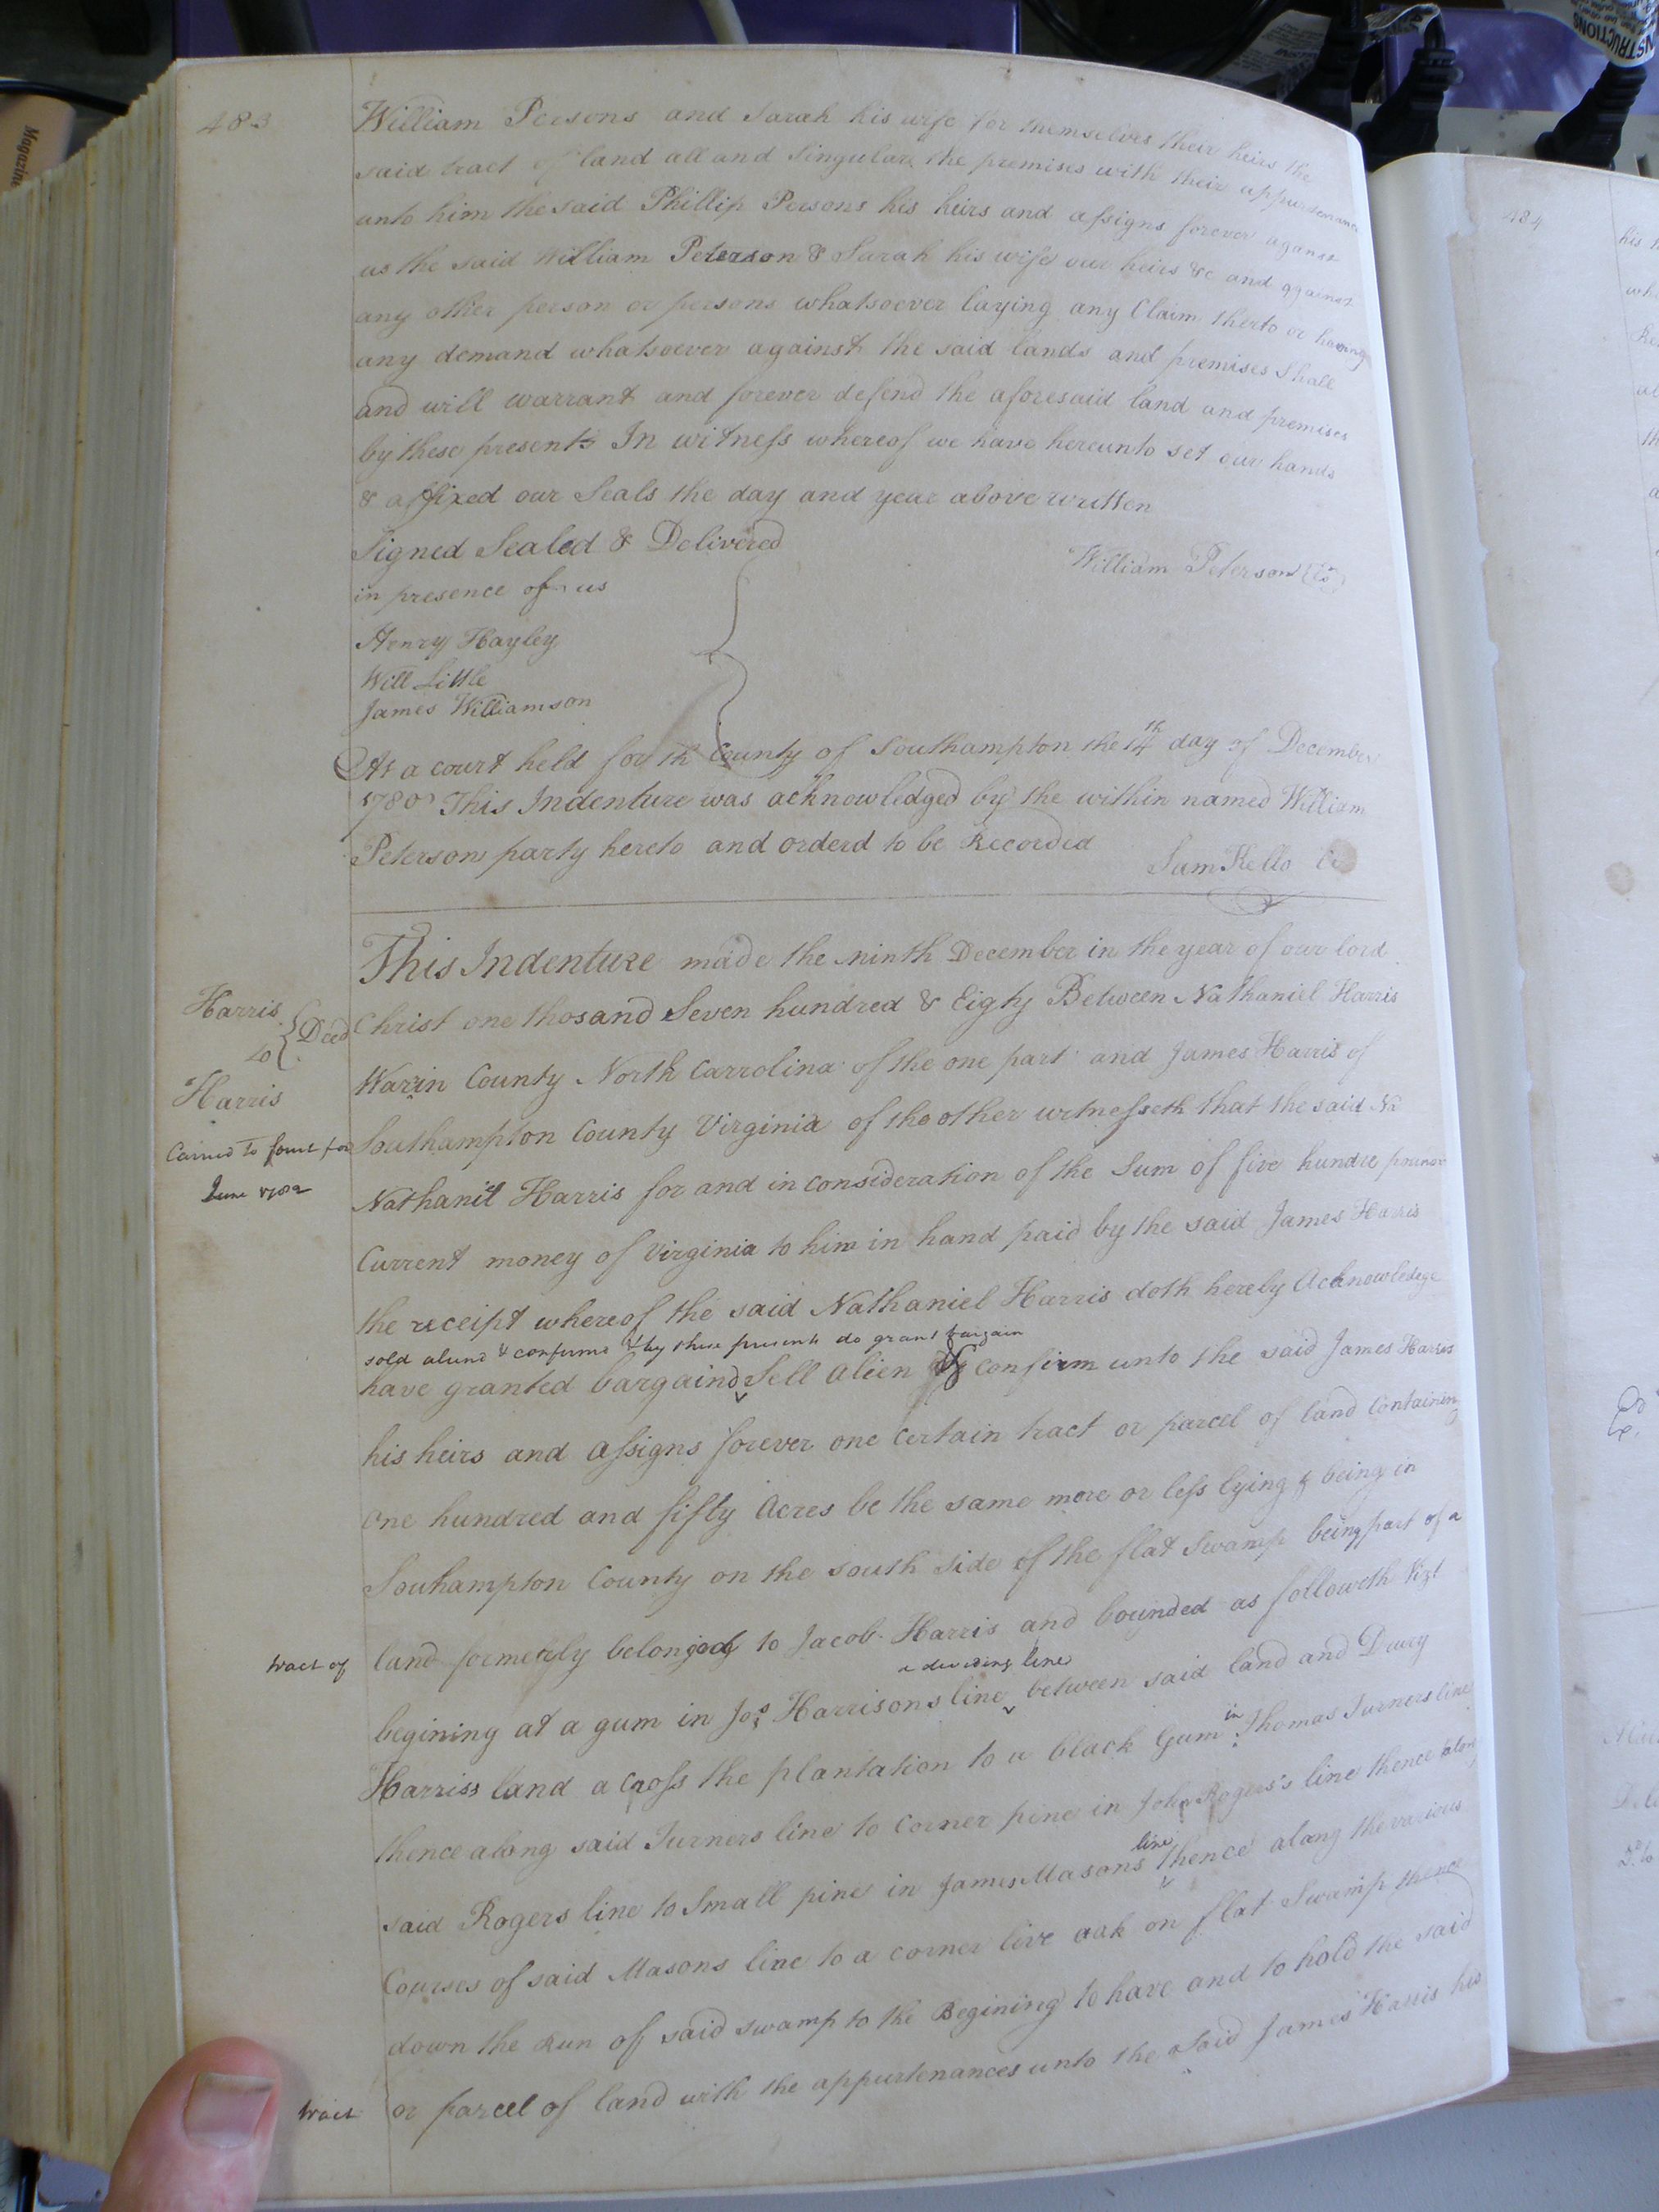 483
William Persons and Sarah his wife for themselves their heirs the
said tract of land all and Singular the premises with their appurtenances
unto him the said Phillip Persons his heirs and assigns forever against
us the said William Peterson & Sarah his wife our heirs &c and against
any other person or persons whatsoever laying any Claim therto or having
any demand whatsoever against the said lands and premises shall
and will warrant and forever defend the aforesaid land and premises
by these presents In witness whereof we have hereunto set our hands
& affixed our Seals the day and year above written
Signed Sealed & Delivered
William Peterson
in presence of us
Henry Hayley
Will Little
James Williamson
At a court held for th County of Southampton the 14th day of December
1780 This Indenture was acknowledged by the within named William
Peterson party hereto and orderd to be Recorded
Sam Kello
This Indenture made the ninth December in the year of our lord
Harris
to
Deed
Harris
Christ one thosand Seven hundred & Eighty Between Nathaniel Harris
Warin County North Carrolina of the one part and James Harris of
Carried to Court for
June 1782
Southampton County Virginia of the other witnesseth that the said Na
Nathaniel Harris for and in consideration of the Sum of five hundre pounds
Current money of Virginia to him in hand paid by the said James Harris
the receipt whereof the said Nathaniel Harris doth hereby Acknowledge
sold aliend & confirmd & by these presents do grant bargain
have granted bargaind Sell alien & confirm unto the said James Harris
his heirs and assigns forever one certain tract or parcel of land Containing
one hundred and fifty Acres be the same more or less lying & being in
Southampton County on the south side of the flat Swamp being part of a
tract of
land formerly belonging to Jacob Harris and bounded as followeth Vizt
begining at a gum in Jos Harrisons line a dividing line between said land and Drury
Harriss land a Cross the plantation to a black Gum in Thomas Turners line
thence along said Turners line to Corner pine in John Rogers's line thence along
said Rogers line to Small pine in James Masons line thence along the various
Courses of said Masons line to a corner live oak on flat Swamp thence
down the Run of said swamp to the Begining to have and to hold the said
tract
or parcel of land with the appurtenances unto the said James Harris his
484
his
Magazine
INSTRUCTIONS